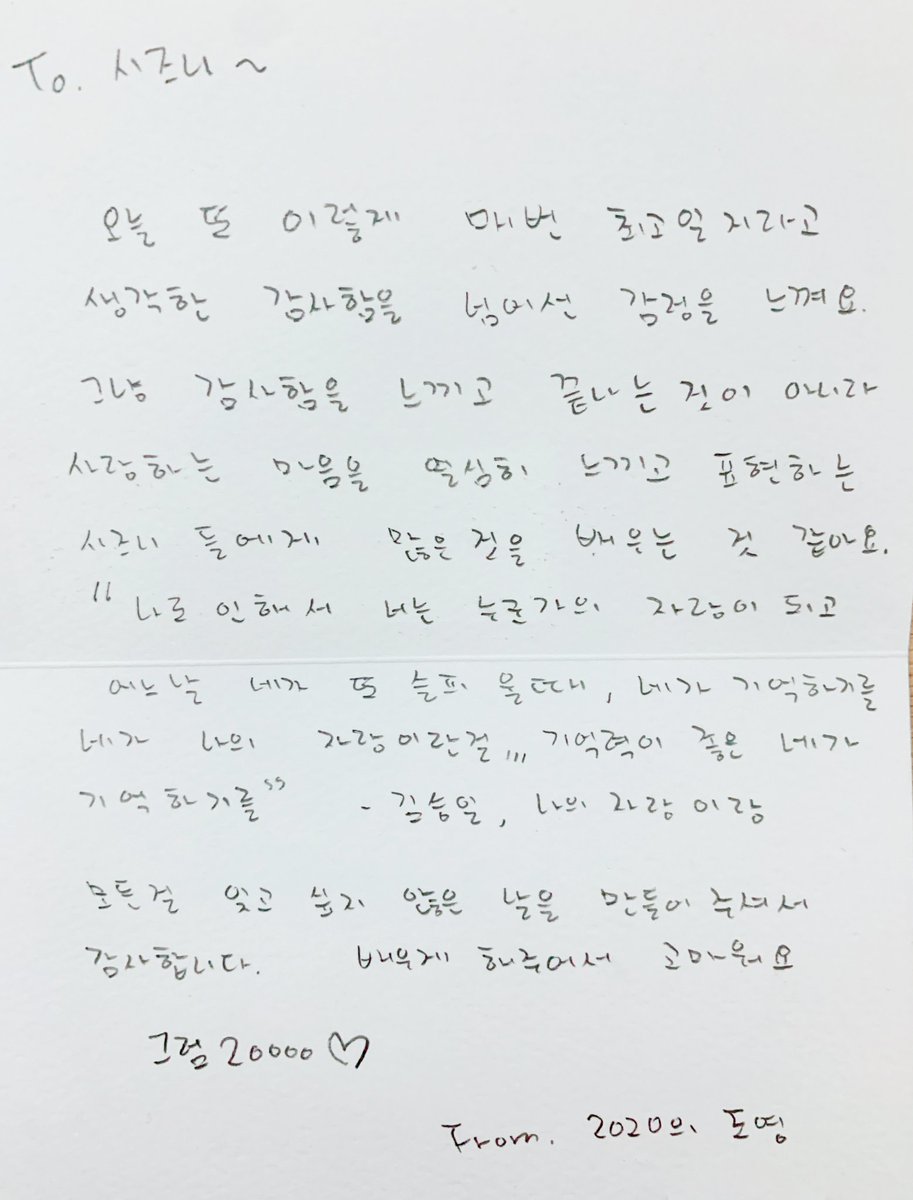 To. 시즈니 ~
오늘 또 이렇게 매번 최고일 지라고
생각한 감사함을 넘어선 감정을 느껴요.
그냥 감사함을 느끼고 끝나는 것이 아니라
사랑하는 마음을 열심히 느끼고 표현하는
시즈니 들에게 많은 것을 배우는 것 같아요.
"나로 인해서 너는 누군가의 자랑이 되고
어느날 네가 또 슬피 울때, 네가 기억하기를
네가 나의 자랑이란걸,,, 기억력이 좋은 네가
기억하기를" - 김승일, 나의 자랑 이랑
모든걸 잊고 싶지 않은 날을 만들어 주셔서
감사합니다. 배우게 해주어서 고마워요
그럼 20000♡
From. 2020의 도영